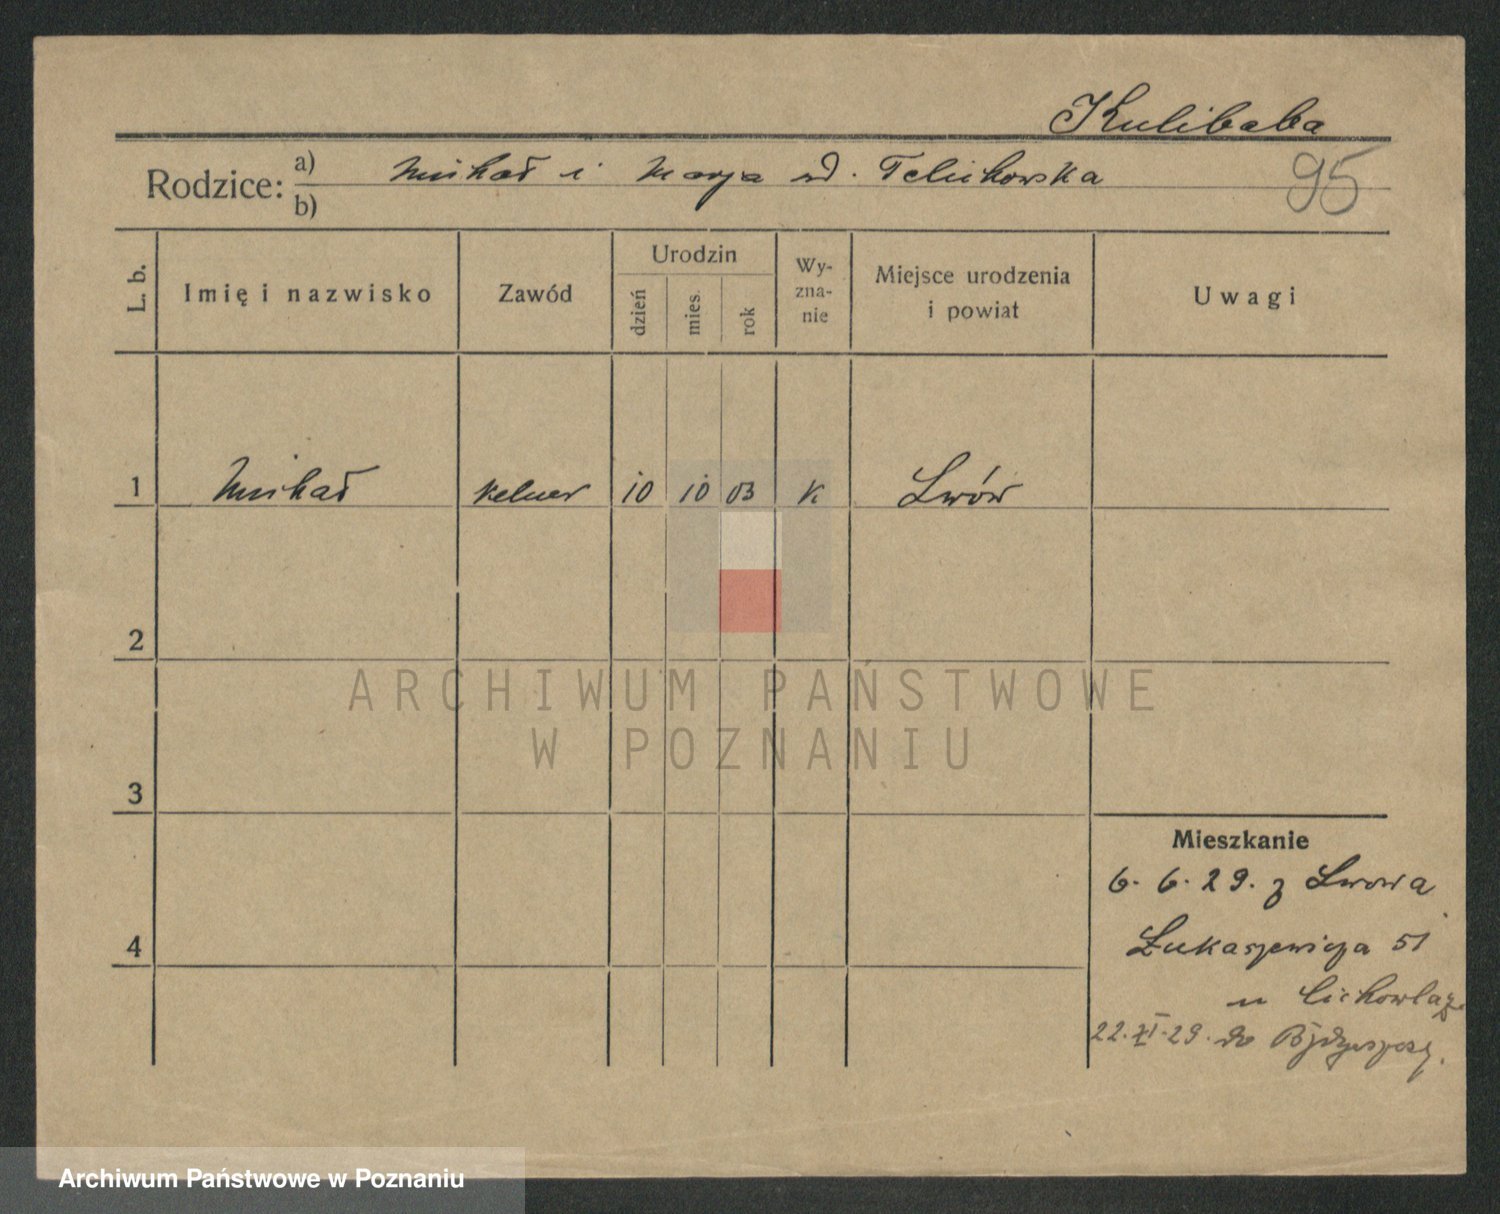 Kulibaba
Rodzice: a) Michał i Marja
b)
95
L. b. Imię i nazwisko Zawód Urodzin dzień mies. rok Wy-zna-nie Miejsce urodzenia i powiat Uwagi
1 Michał kelner 10 10 03 K Lwów
2
ARCHIWUM PAŃSTWOWE
W POZNANIU
3
Mieszkanie
6. 6. 29. z Lwowa
4
Łukaszewicza 51
22. XI. 29. do Bydgoszczy.
Archiwum Państwowe w Poznaniu